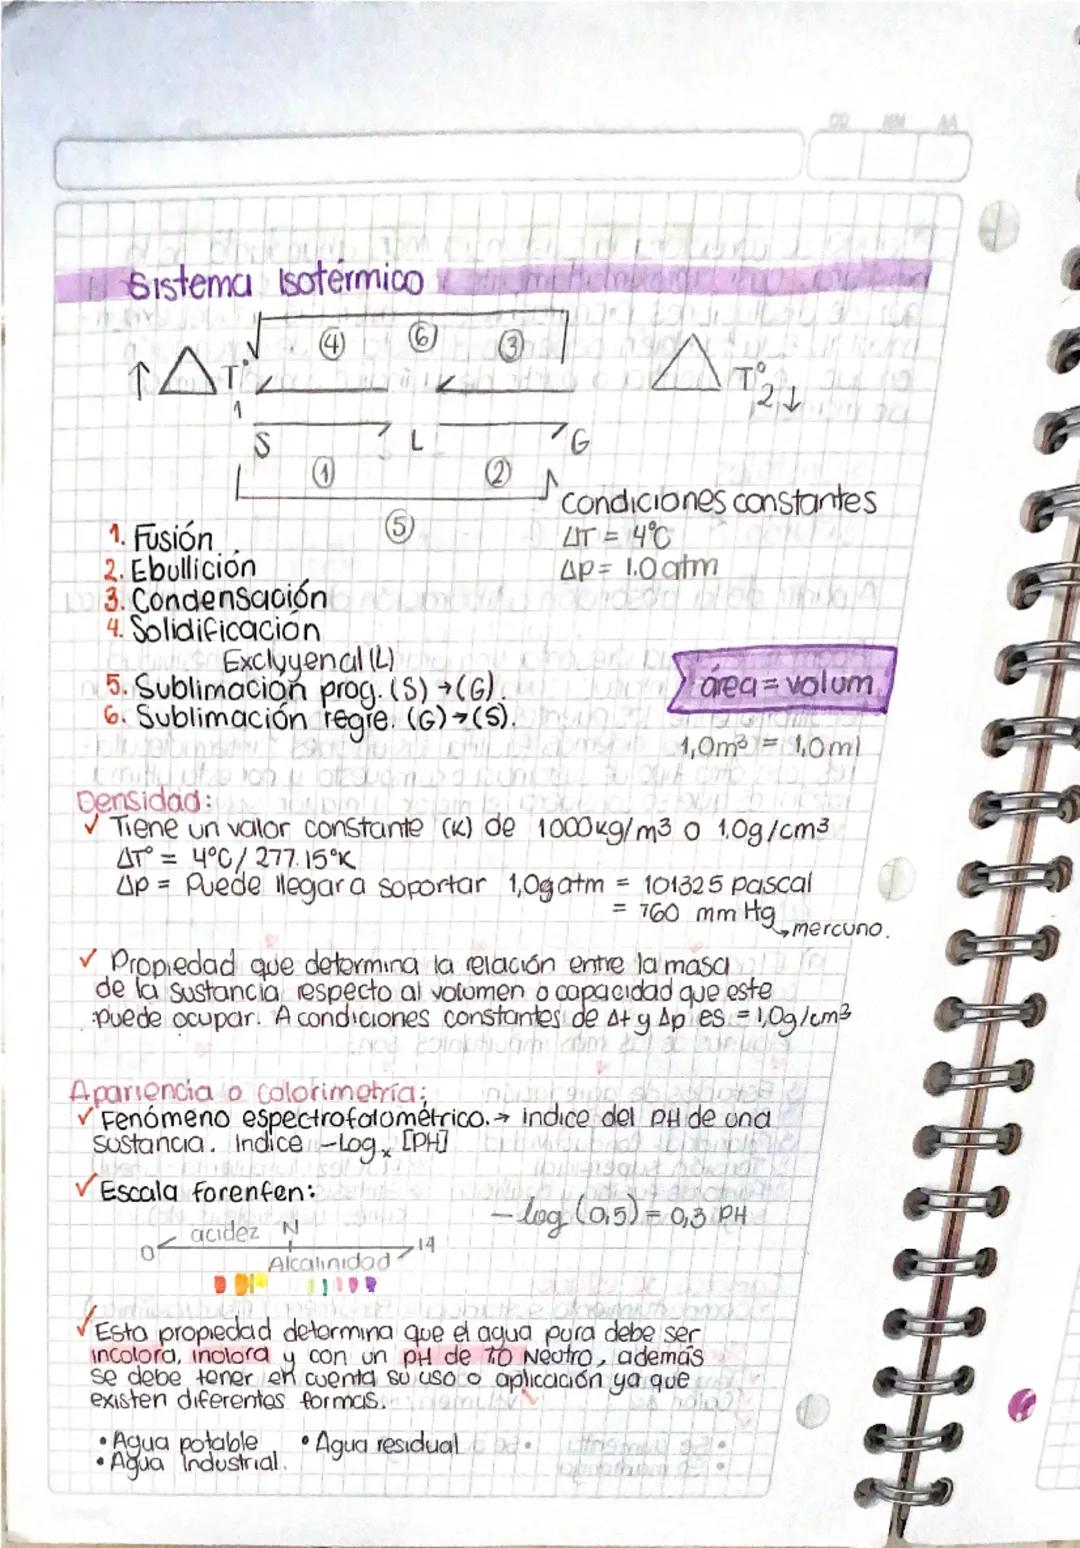 DD MM AA
Sistema Isotérmico
④ ⑥ ③
↑ △ T°1
△ T°2 ↓
S L G
① ②
⑤
condiciones constantes
ΔT = 4°C
Δp = 1.0 atm
1. Fusión
2. Ebullición
3. Condensación
4. Solidificación
Excluyen al (L)
5. Sublimación prog. (S) → (G).
6. Sublimación regre. (G) → (S).
área = volum
1,0m³ = 1,0ml
Densidad:
✓ Tiene un valor constante (K) de 1000kg/m³ o 1,0g/cm³
ΔT° = 4°C / 277.15°K
Δp = Puede llegar a soportar 1,0g atm = 101325 pascal
= 760 mm Hg
↳ mercurio.
✓ Propiedad que determina la relación entre la masa
de la sustancia respecto al volumen o capacidad que este
puede ocupar. A condiciones constantes de Δt y Δp es = 1,0g/cm³
Apariencia o colorimetría:
✓ Fenómeno espectrofalométrico. → indice del PH de una
sustancia. Indice -Logₓ [PH]
✓ Escala forenfen:
-log (0,5) = 0,3 PH
acidez N
0 14
Alcalinidad
✓ Esta propiedad determina que el agua pura debe ser
incolora, inolora y con un pH de 7.0 Neutro, además
se debe tener en cuenta su uso o aplicación ya que
existen diferentes formas.
• Agua potable • Agua residual
• Agua Industrial.